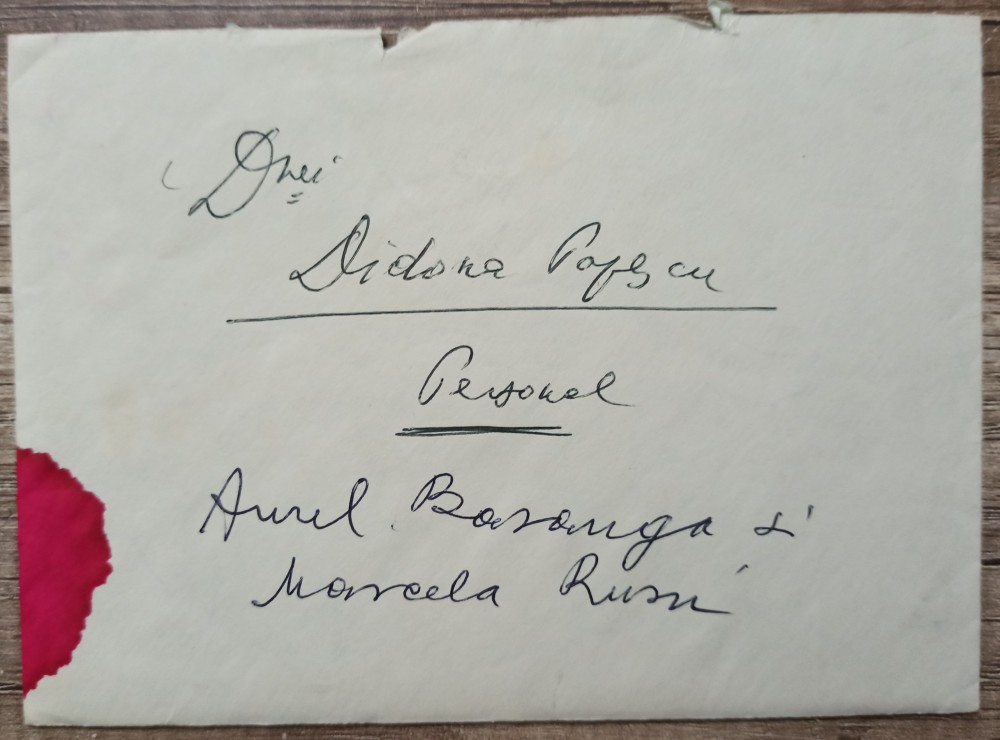 Dnei
Didona Popescu
Personal
Aurel Baranga și
Marcela Rusu